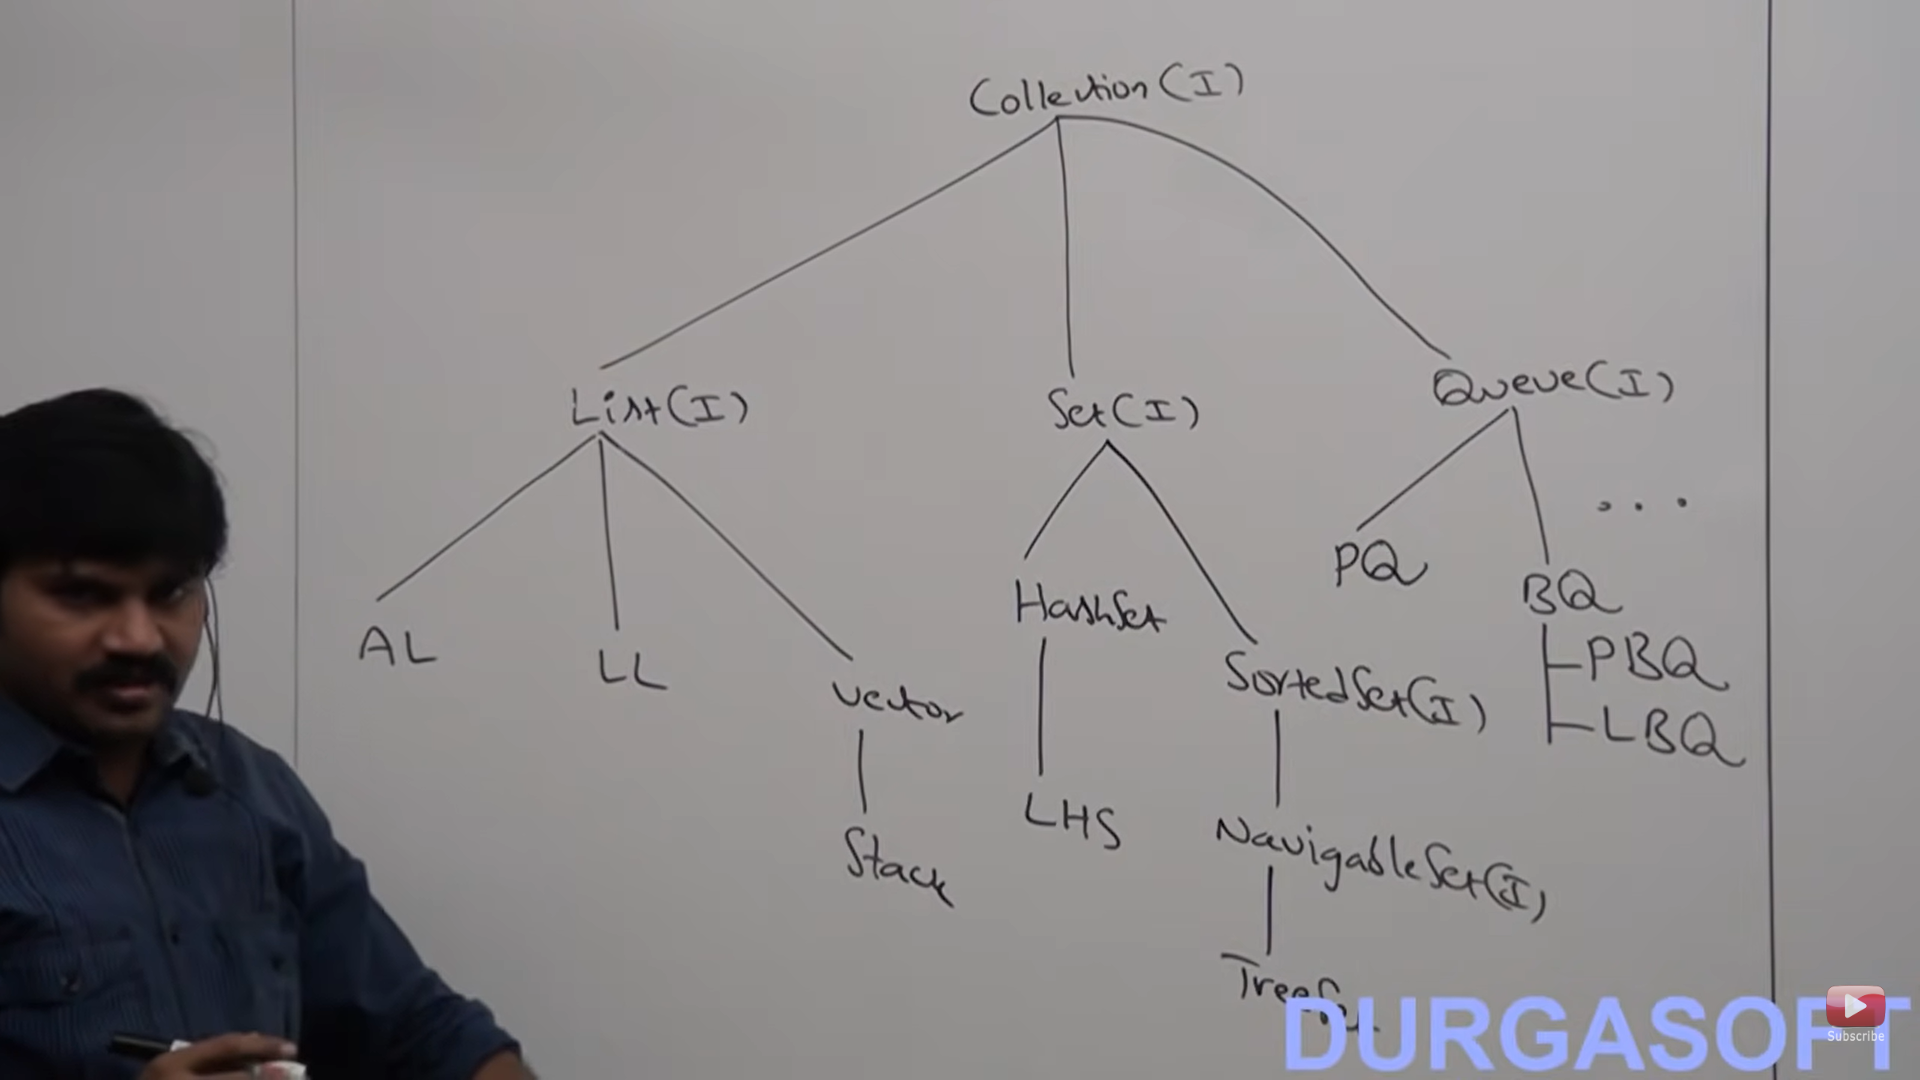 Collection(I)
List(I)
Set(I)
Queue(I)
AL
LL
Vector
Stack
HashSet
LHS
SortedSet(I)
NavigableSet(I)
PQ
...
BQ
PBQ
LBQ
DURGASOFT
Subscribe